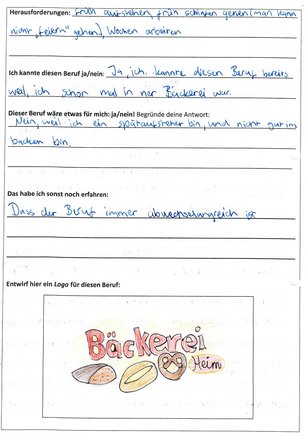 Herausforderungen: Früh aufstehen, früh schlafen gehen (man kann
nicht „feiern“ gehen), Wochen arbeiten
Ich kannte diesen Beruf ja/nein: Ja ich kannte diesen Beruf bereits
weil ich schon mal in ner Bäckerei war.
Dieser Beruf wäre etwas für mich: ja/nein! Begründe deine Antwort:
Nein, weil ich ein spätaufsteher bin, und nicht gut im
backen bin.
Das habe ich sonst noch erfahren:
Dass der Beruf immer abwechslungsreich ist
Entwirf hier ein Logo für diesen Beruf:
Bäckerei
Heim